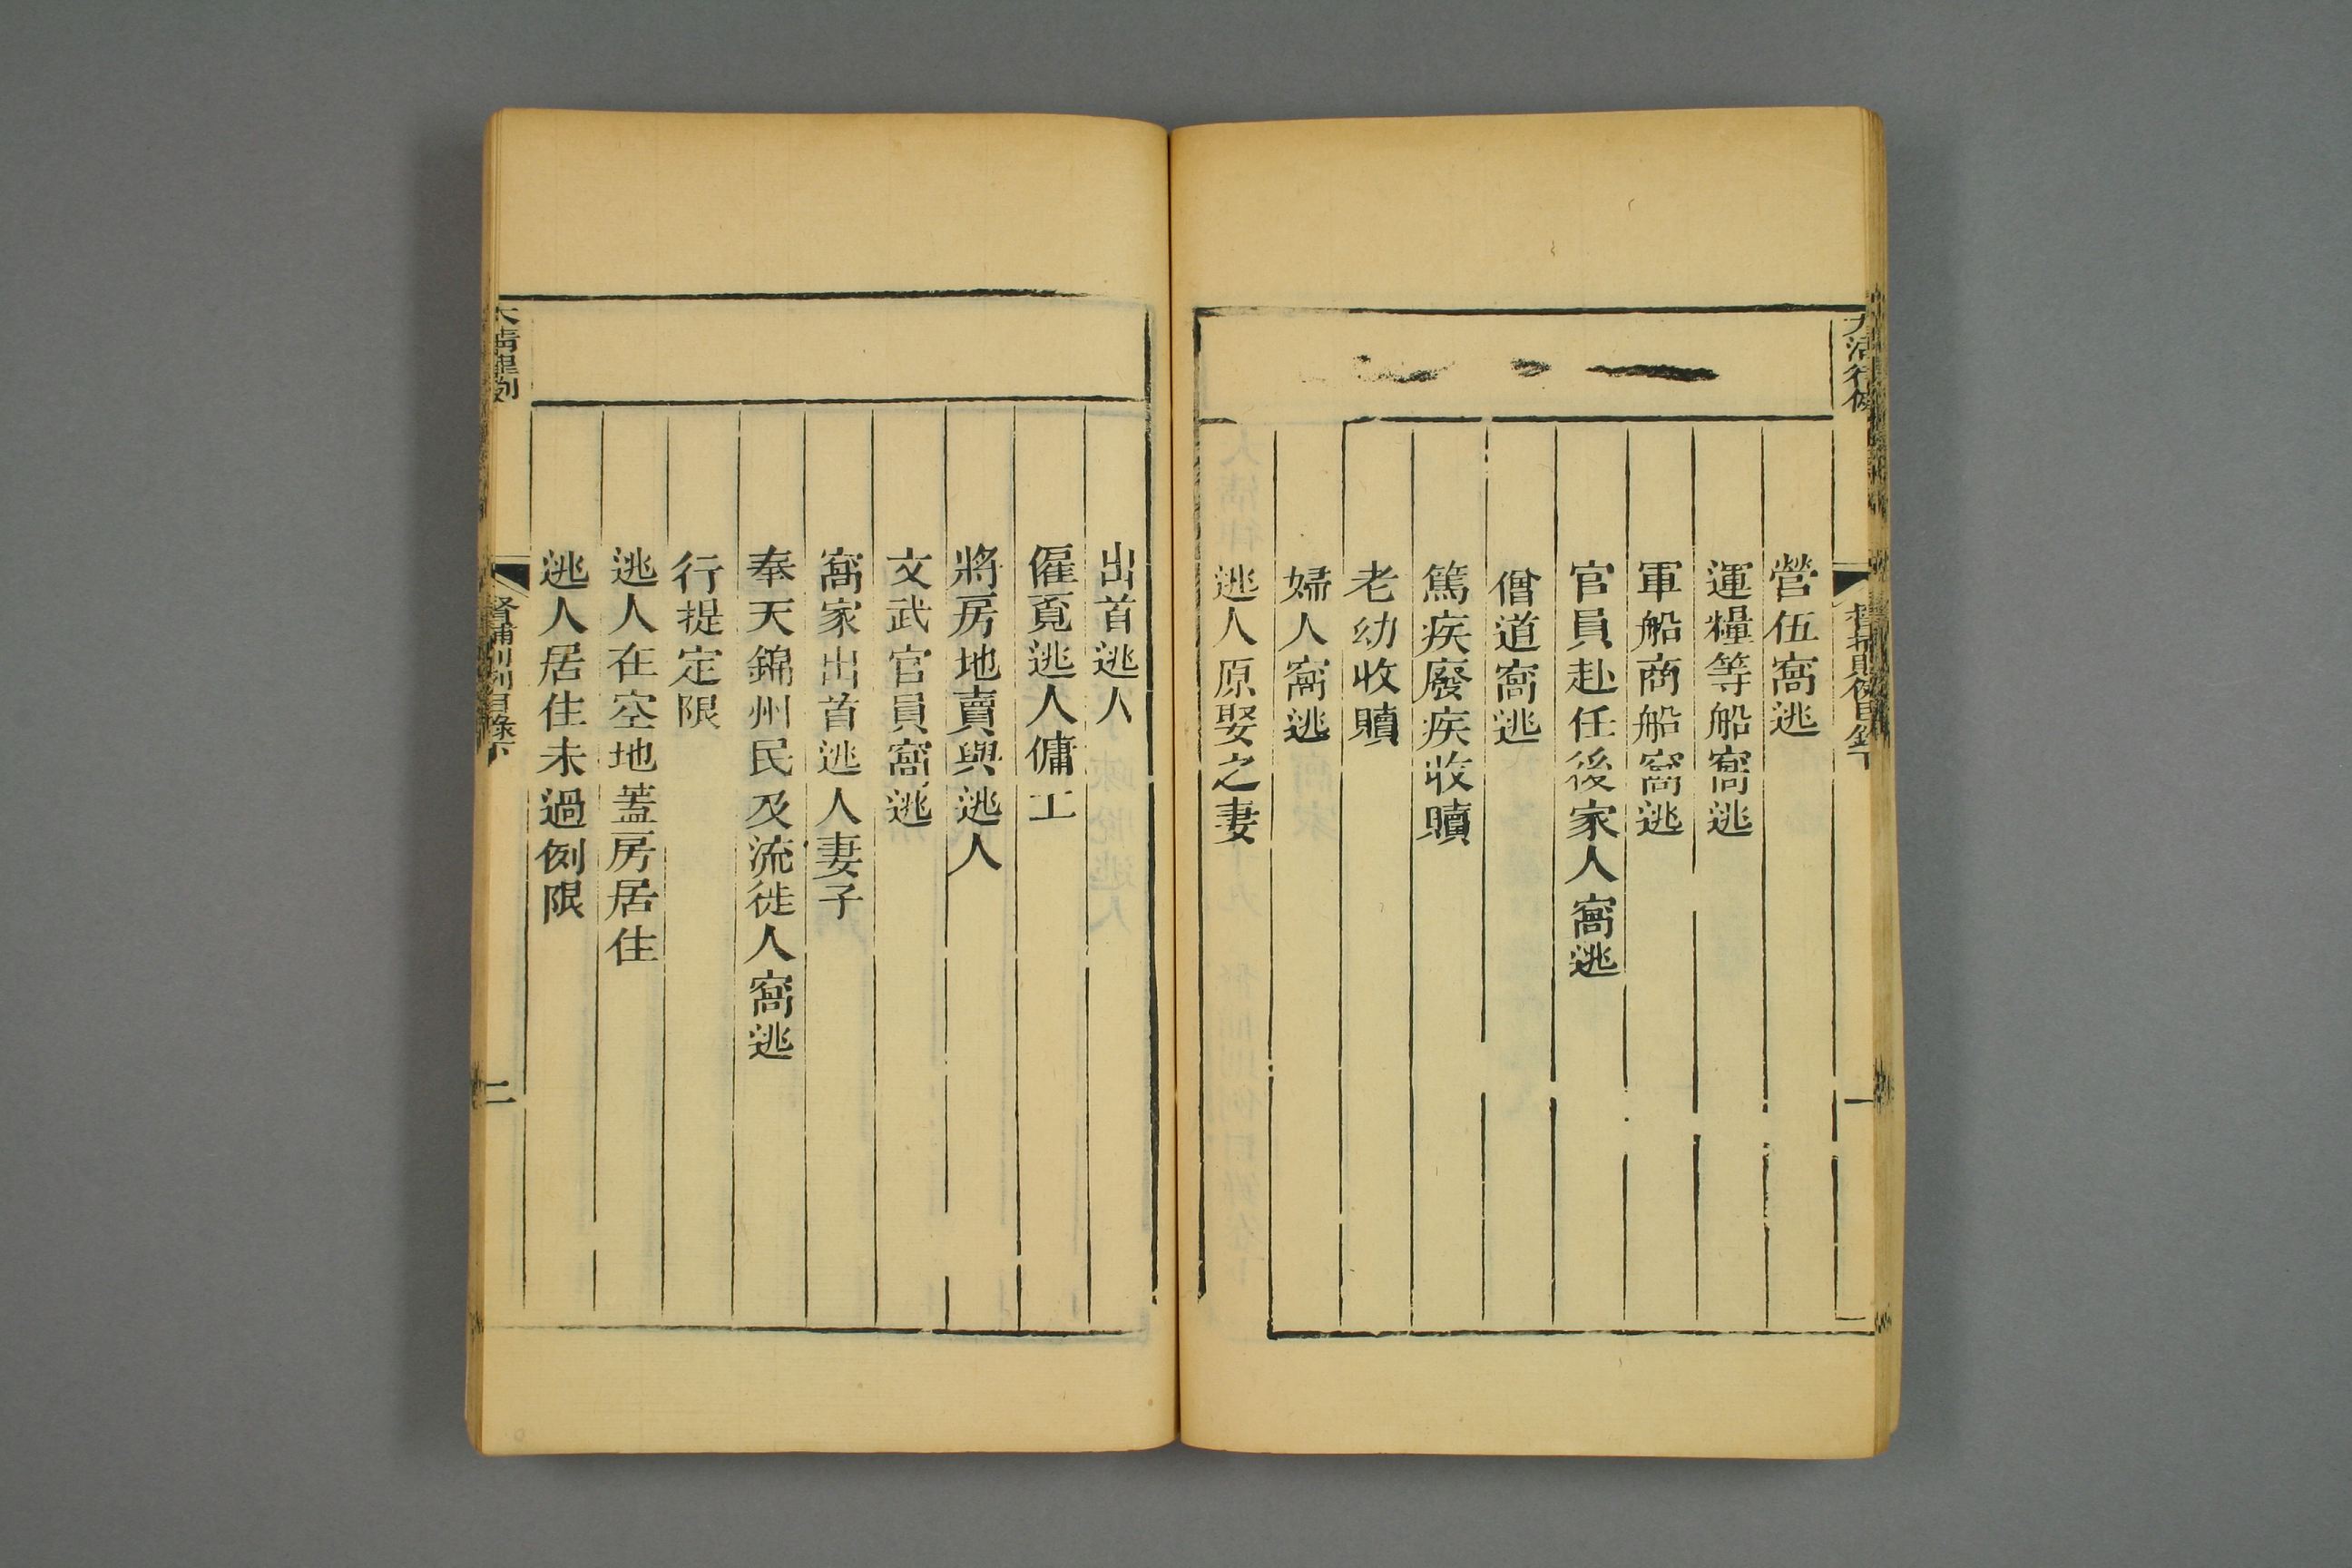 大清律例
督捕則例目錄下
一
營伍窩逃
運糧等船窩逃
軍船商船窩逃
官員赴任後家人窩逃
僧道窩逃
篤疾廢疾收贖
老幼收贖
婦人窩逃
逃人原娶之妻
出首逃人
僱覔逃人傭工
將房地賣與逃人
文武官員窩逃
窩家出首逃人妻子
奉天錦州民及流徙人窩逃
行提定限
逃人在空地蓋房居住
逃人居住未過例限
大清律例
督捕則例目錄下
二